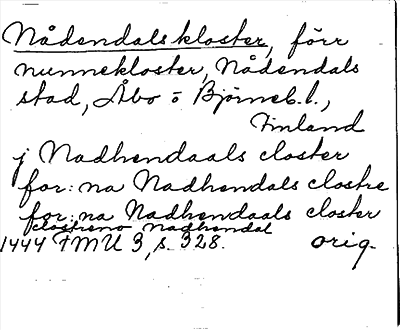 Nådendalskloster, förr
nunnekloster, Nådendals
stad, Åbo o Björneb. l.,
Finland
j Nadhendaals closter
for: na Nadhendals clostre
for: na Nadhendaals closter
clostreno Nadhendal
1444 FMU 3, s. 328. orig.